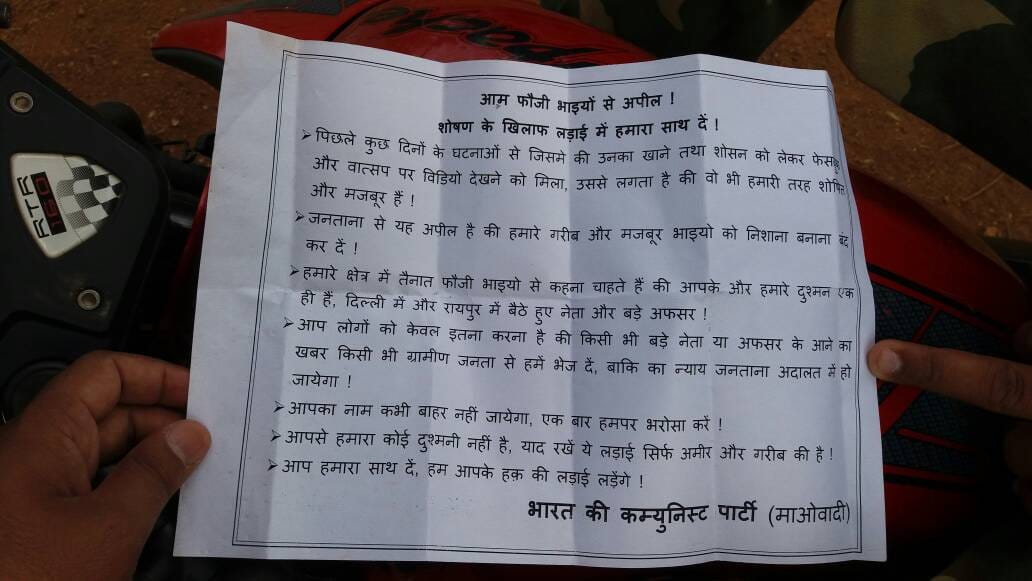 Speed
RTR
160
आम फौजी भाइयों से अपील !
शोषण के खिलाफ लड़ाई में हमारा साथ दें !
➢ पिछले कुछ दिनों के घटनाओं से जिसमे की उनका खाने तथा शोसन को लेकर
और वात्सप पर विडियो देखने को मिला, उससे लगता है की वो भी हमारी तरह
और मजबूर हैं !
➢ जनताना से यह अपील है की हमारे गरीब और मजबूर भाइयो को निशाना बनाना बंद
कर दें !
➢ हमारे क्षेत्र में तैनात फौजी भाइयो से कहना चाहते हैं की आपके और हमारे दुश्मन एक
ही हैं, दिल्ली में और रायपुर में बैठे हुए नेता और बड़े अफसर !
➢ आप लोगों को केवल इतना करना है की किसी भी बड़े नेता या अफसर के आने का
खबर किसी भी ग्रामीण जनता से हमें भेज दें, बाकि का न्याय जनताना अदालत में हो
जायेगा !
➢ आपका नाम कभी बाहर नहीं जायेगा, एक बार हमपर भरोसा करें !
➢ आपसे हमारा कोई दुश्मनी नहीं है, याद रखें ये लड़ाई सिर्फ अमीर और गरीब की है !
➢ आप हमारा साथ दें, हम आपके हक़ की लड़ाई लड़ेंगे !
भारत की कम्युनिस्ट पार्टी (माओवादी)